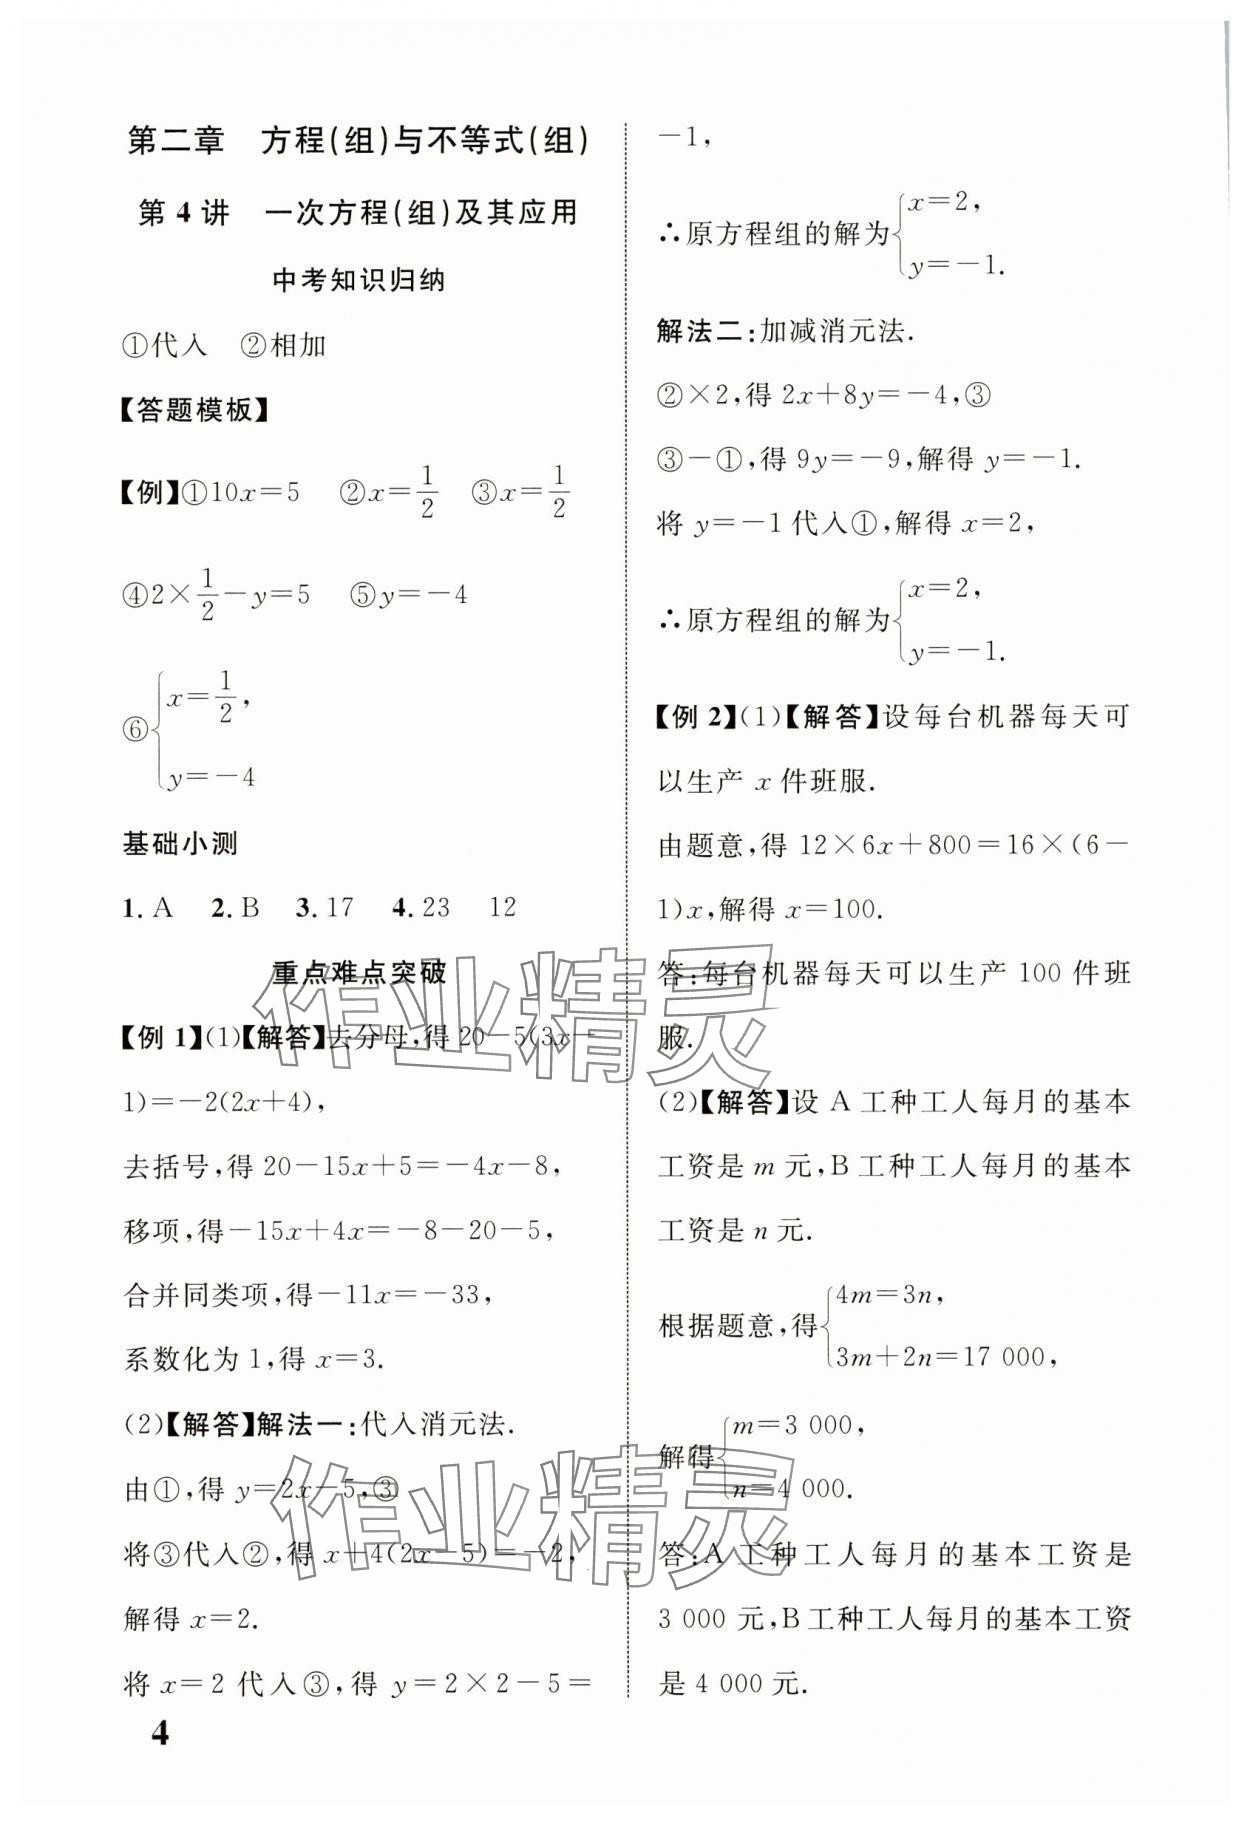 第二章　方程(组)与不等式(组)
第 4 讲　一次方程(组)及其应用
中考知识归纳
①代入　②相加
【答题模板】
【例】①10x=5　②x=1/2　③x=1/2
④2×1/2-y=5　⑤y=-4
⑥{x=1/2,
y=-4
基础小测
1. A　2. B　3. 17　4. 23　12
重点难点突破
【例 1】(1)【解答】去分母,得 20-5(3x-
1)=-2(2x+4),
去括号,得 20-15x+5=-4x-8,
移项,得-15x+4x=-8-20-5,
合并同类项,得-11x=-33,
系数化为 1,得 x=3.
(2)【解答】解法一:代入消元法.
由①,得 y=2x-5,③
将③代入②,得 x+4(2x-5)=-2,
解得 x=2.
将 x=2 代入③,得 y=2×2-5=
-1,
∴原方程组的解为{x=2,
y=-1.
解法二:加减消元法.
②×2,得 2x+8y=-4,③
③-①,得 9y=-9,解得 y=-1.
将 y=-1 代入①,解得 x=2,
∴原方程组的解为{x=2,
y=-1.
【例 2】(1)【解答】设每台机器每天可
以生产 x 件班服.
由题意,得 12×6x+800=16×(6-
1)x,解得 x=100.
答:每台机器每天可以生产 100 件班
服.
(2)【解答】设 A 工种工人每月的基本
工资是 m 元,B 工种工人每月的基本
工资是 n 元.
根据题意,得{4m=3n,
3m+2n=17 000,
解得{m=3 000,
n=4 000.
答:A 工种工人每月的基本工资是
3 000 元,B 工种工人每月的基本工资
是 4 000 元.
4
作业精灵
作业精灵